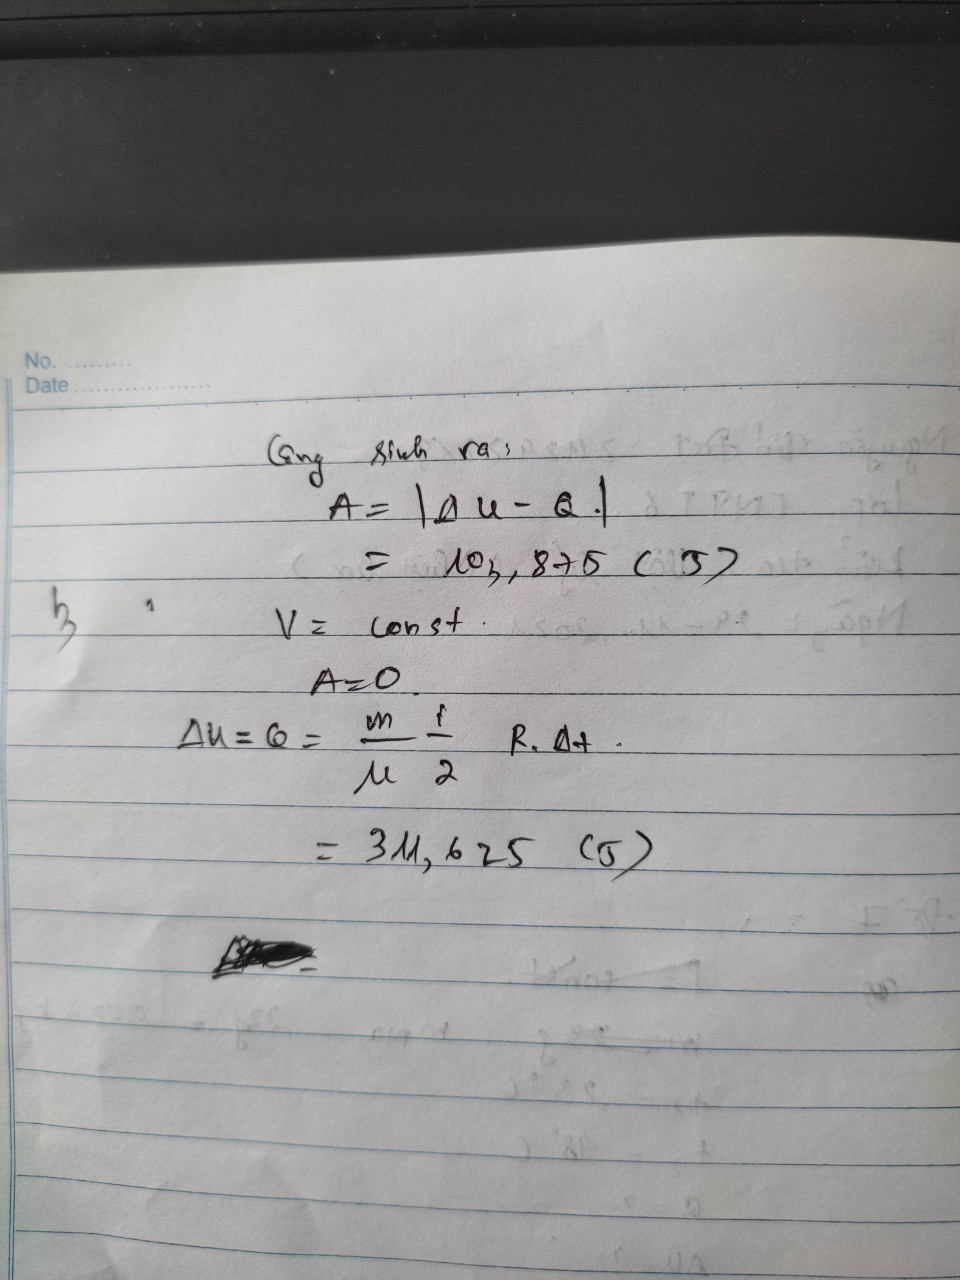 No. .........
Date ...................
Công sinh ra:
A = |ΔU - Q.|
= 103,875 (J)
b,
V = const.
A = 0.
ΔU = Q = m/μ i/2 R. Δt.
= 311,625 (J)